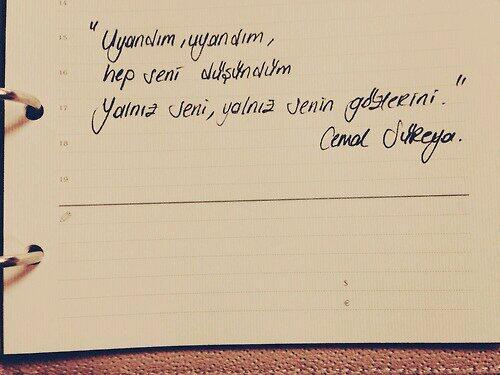 14
15
"Uyandım, uyandım,
hep seni düşündüm
16
17
Yalnız seni, yalnız senin gözlerini."
18
Cemal Süreya.
19
$
€